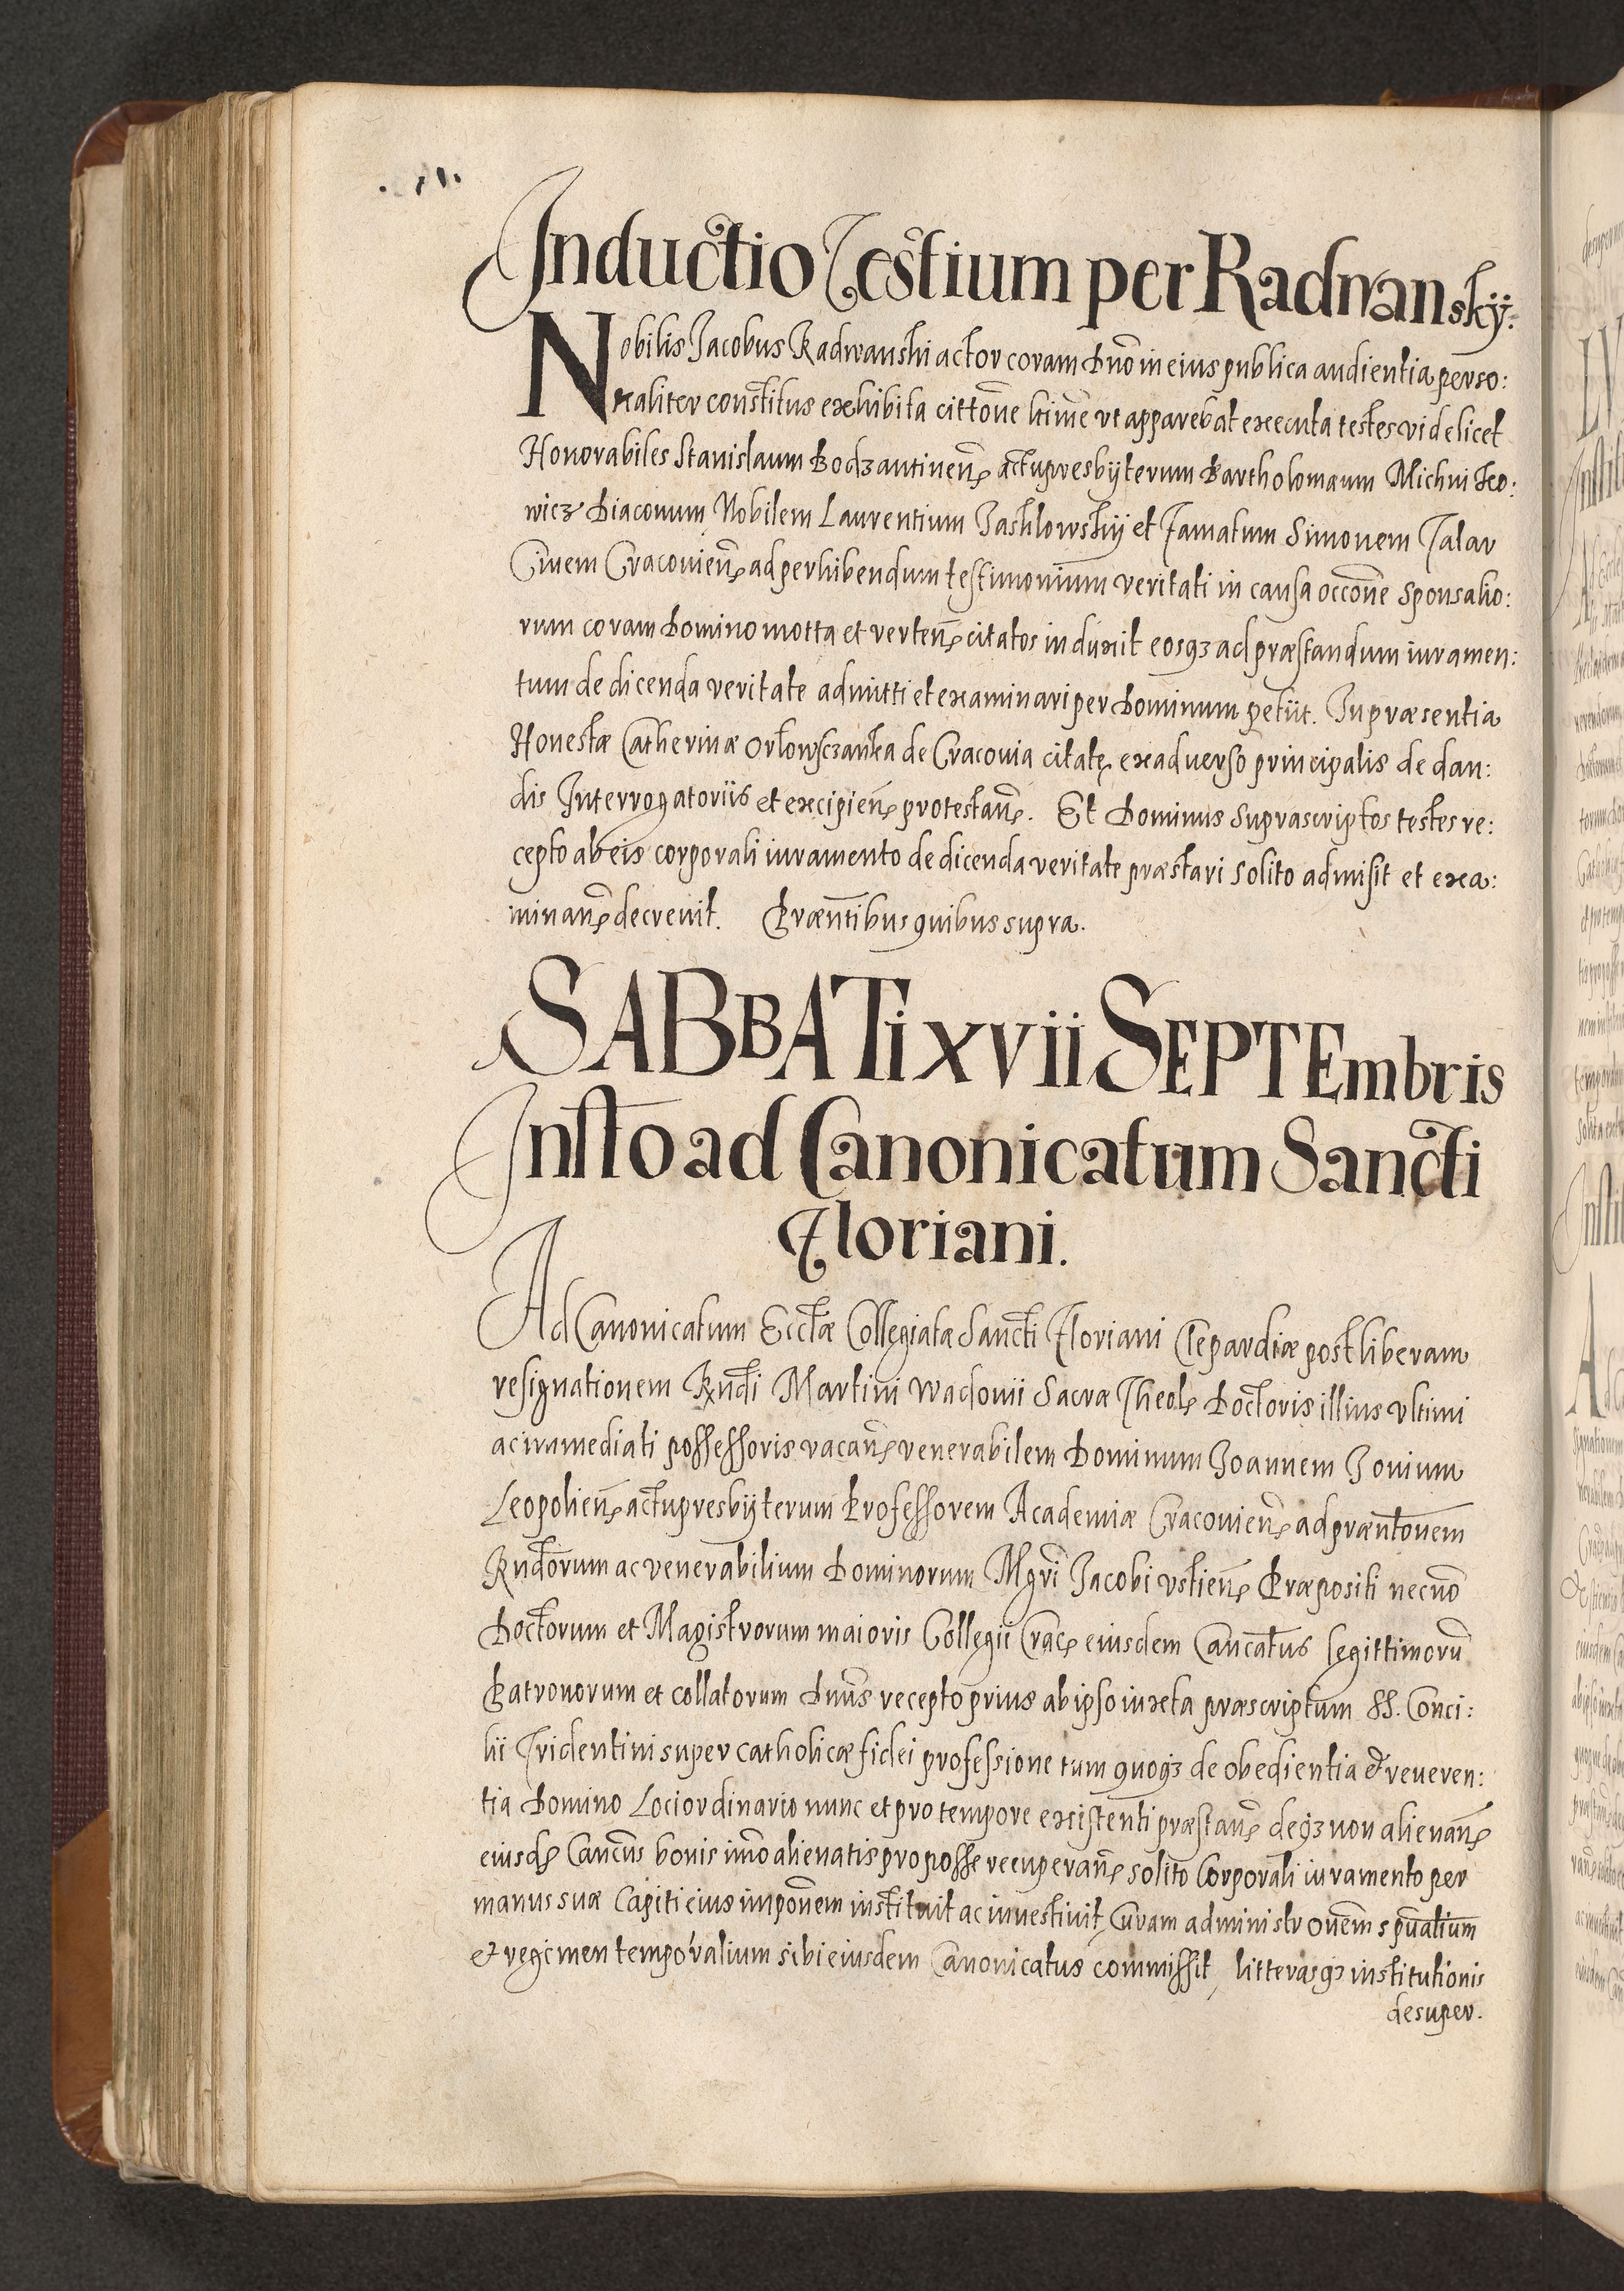 Inductio Testium per Radwanskÿ.
Nobilis Jacobus Radwanski actor coram Dnõ in eius publica audientia perso:
naliter constitus exhibita cittone hinc vt apparebat executa testes videlicet
Honorabiles Stanislaum Bodzantinen actupresbÿterum Bartholomæum Michni
wicz Diaconum Nobilem Laurentium Jasklowskÿ et Famatum Simonem Talar
Civem Cracovien ad perhibendum testimonium veritati in causa occone sponsalio:
rum coram Domino motta et verten citatos induxit eosqz ad præstandum iuramen:
tum de dicenda veritate admitti et examinari per Dominum petiit. In præsentia
Honestæ Catherinæ Orlowsczanka de Cracovia citatę ex adverso principalis de dan:
dis Interrogatoriis et excipien protestan. Et Dominus suprascriptos testes re:
cepto ab eis corporali iuramento de dicenda veritate præstari solito admisit et exa:
minan decrevit. Præntibus quibus supra.
SABBATi xvii SEPTEmbris
Instto ad Canonicatum Sancti
Floriani.
Ad Canonicatum Ecctæ Collegiatæ Sancti Floriani Clepardiæ post liberam
resignationem Rndi Martini Wadovii Sacræ Theol Doctoris illius vltimi
ac immediati possessoris vacan venerabilem Dominum Joannem Jonium
Leopolien actupresbÿterum Professorem Academiæ Cracovien ad præntonem
Rndorum ac venerabilium Dominorum Mgri Jacobi vstien Præpositi necnõ
Doctorum et Magistrorum maioris Collegii Crac eiusdem Cancatus legittimorũ
Patronorum et collatorum Dnus recepto prius ab ipso iuxta præscriptum SS. Conci:
lii Tridentini super catholicæ fidei professione tum quoqz de obedientia & reveren:
tia Domino Loci ordinario nunc et pro tempore existenti præstan deqz non alienan
eiusd Cancus bonis imo alienatis pro posse recuperan solito Corporali iuramento per
manus suæ Capiti eius imponem instituit ac investivit, Curam administronem spualium
et regimen temporalium sibi eiusdem Canonicatus commissit, litterasqz institutionis
desuper.